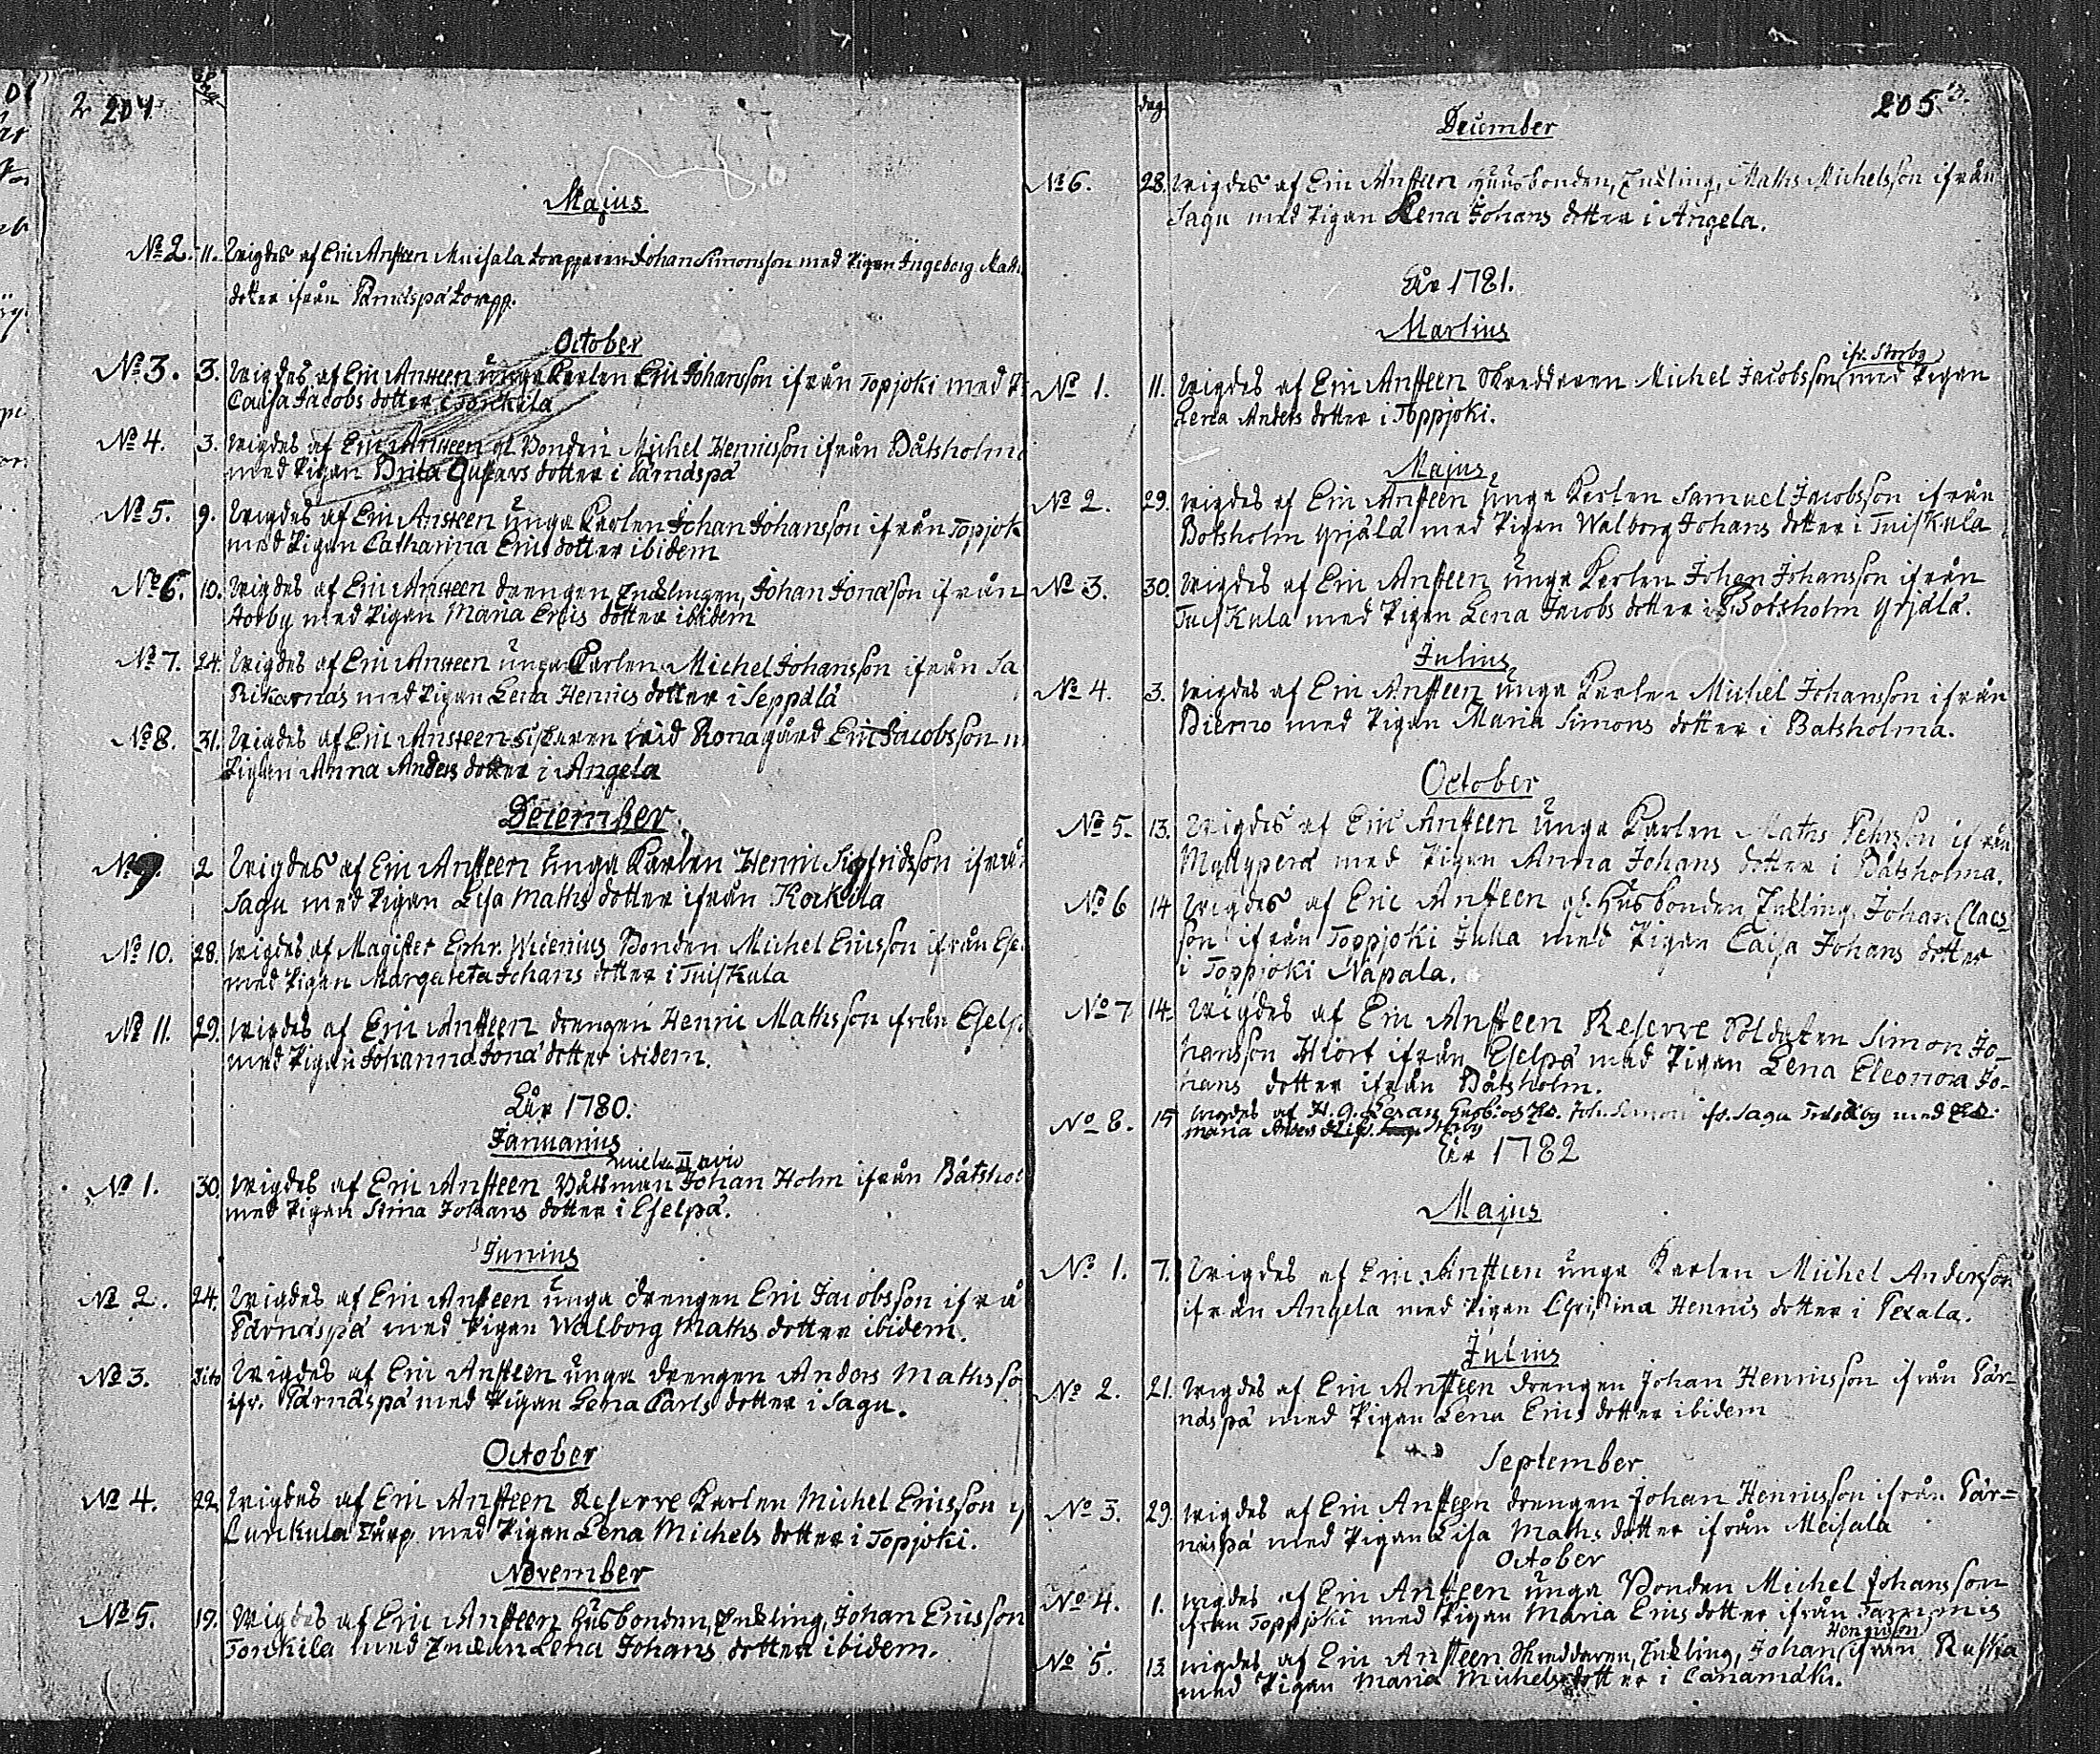 2 204
Majus
No 2. 11. Wigdes af Eric Ansteen Meisala torpparen Johan Simonsson med Pigan Ingeborg Maths
dotter ifrån torpp.
October
No 3. 3. Wigdes af Eric Ansteen unga Karlen Eric Johansson ifrån Topjoki med
Caisa Jacobs dotter i Torikila
No 4. 3. Wigdes af Eric Ansteen Bonden Michel Henricsson ifrån Båtsholm
med Pigan Brita Gustavs dotter i Tärnäspä
No 5. 9. Wigdes af Eric Ansteen unga Karlen Johan Johansson ifrån Topjok
med Pigan Catharina Erics dotter ibidem
No 6. 10. Wigdes af Eric Ansteen drengen Encklingen, Johan Jonasson ifrån
Storby med Pigan Maria Erics dotter ibidem
No 7. 24. Wigdes af Eric Ansteen unga Karlen Michel Johansson ifrån Sa
Rikarnäs med Pigan Lena Henrics dotter i Seppälä
No 8. 31. Wigdes af Eric Ansteen wid Ronagård Eric Jacobsson
Pigan Anna Anders dotter i Angela
December
No 9. 2 Wigdes af Eric Ansteen unga Karlen Henric Sigfridsson ifrån
Sagu med Pigan Lisa Maths dotter ifrån Kockila
No 10. 28. Wigdes af Magister Ephr. Wicenius Bonden Michel Ericsson ifrån
med Pigan Margareta Johans dotter i Tuiskula
No 11. 29. Wigdes af Eric Ansteen drengen Henric Mathsson ifrån Eselp
med Pigan Johanna Jona dotter ibidem.
Åhr 1780.
Januarius
No 1. 30. Wigdes af Eric Ansteen Båtsman Johan Holm ifrån Båtshol
med Pigan Stina Johans dotter i Eselpä.
Junius
No 2. 24. Wigdes af Eric Ansteen unga drengen Eric Jacobsson ifrå
Tärnäspä med Pigan Walborg Maths dotter ibidem.
No 3. Dito Wigdes af Eric Ansteen unga drengen Anders Mathsso
ifr. Tärnäspä med Pigan Lena Carls dotter i Sagu.
October
No 4. 22. Wigdes af Eric Ansteen Reserve Karlen Michel Ericsson
Lurikula Torp med Pigan Lena Michels dotter i Topjoki.
November
No 5. 19. Wigdes af Eric Ansteen Husbonden, Enckling, Johan Ericsson
Torikila med Enckan Lena Johans dotter ibidem.
dag 205
December
No 6. 28. Wigdes af Eric Ansteen Husbonden, Enckling, Maths Michelsson ifrån
Sagu med Pigan Lena Johans dotter i Angela.
Åhr 1781.
Martius
ifr. Storby
No 1. 11. Wigdes af Eric Ansteen Skreddaren Michel Jacobsson med Pigan
Lena Anders dotter i Toppjoki.
Majus
No 2. 29. Wigdes af Eric Ansteen unga Karlen Samuel Jacobsson ifrån
Botsholm Yrjälä med Pigan Walborg Johans dotter i Tuiskula
No 3. 30. Wigdes af Eric Ansteen unga Karlen Johan Johansson ifrån
Tuiskula med Pigan Lena Jacobs dotter i Botsholm Yrjälä.
Julius
No 4. 3. Wigdes af Eric Ansteen unga Karlen Michel Johansson ifrån
Bierno med Pigan Maria Simons dotter i Batsholma.
October
No 5. 13. Wigdes af Eric Ansteen unga Karlen Maths Pehrsson ifrån
Myllyperä med Pigan Anna Johans dotter i Båtsholma.
No 6 14 Wigdes af Eric Ansteen Husbonden Enckling, Johan Claes-
son ifrån Toppjoki Jutila med Pigan Caisa Johans dotter
i Toppjoki Näpälä.
No 7 14. Wigdes af Eric Ansteen Reserve Soldaten Simon Jo-
hansson Hiort ifrån Eselpä med Pigan Lena Eleonora Jo-
hans dotter ifrån Båtsholm.
No 8. 15 Wigdes af Joh. Simon ifr. Sagu med
Maria Anders
År 1782
Majus
No 1. 7. Wigdes af Eric Ansteen unga Karlen Michel Andersson
ifrån Angela med Pigan Christina Henrics dotter i Pexala.
Julius
No 2. 21. Wigdes af Eric Ansteen drengen Johan Henricsson ifrån Tär-
näspä med Pigan Lena Erics dotter ibidem
September
No 3. 29. Wigdes af Eric Ansteen drengen Johan Henricsson ifrån Tär=
näspä med Pigan Lisa Maths dotter ifrån Meisala
October
No 4. 1. Wigdes af Eric Ansteen unga Bonden Michel Johansson
ifrån Toppjoki med Pigan Maria Erics dotter ifrån Tammis
Henricsson
No 5. 13. Wigdes af Eric Ansteen Skreddaren, Enckling, Johan ifrån Ruskia
med Pigan Maria Michels dotter i Canamäki.